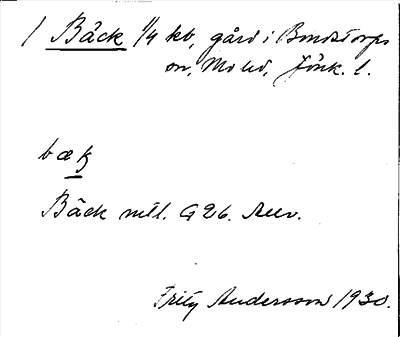 1 Bäck 1/4 kv, gård i Bondstorps
sn, Mo hd, Jönk. l.
bæk
Bäck mtl. G 26. Auv.
Fritz Andersson 1930.